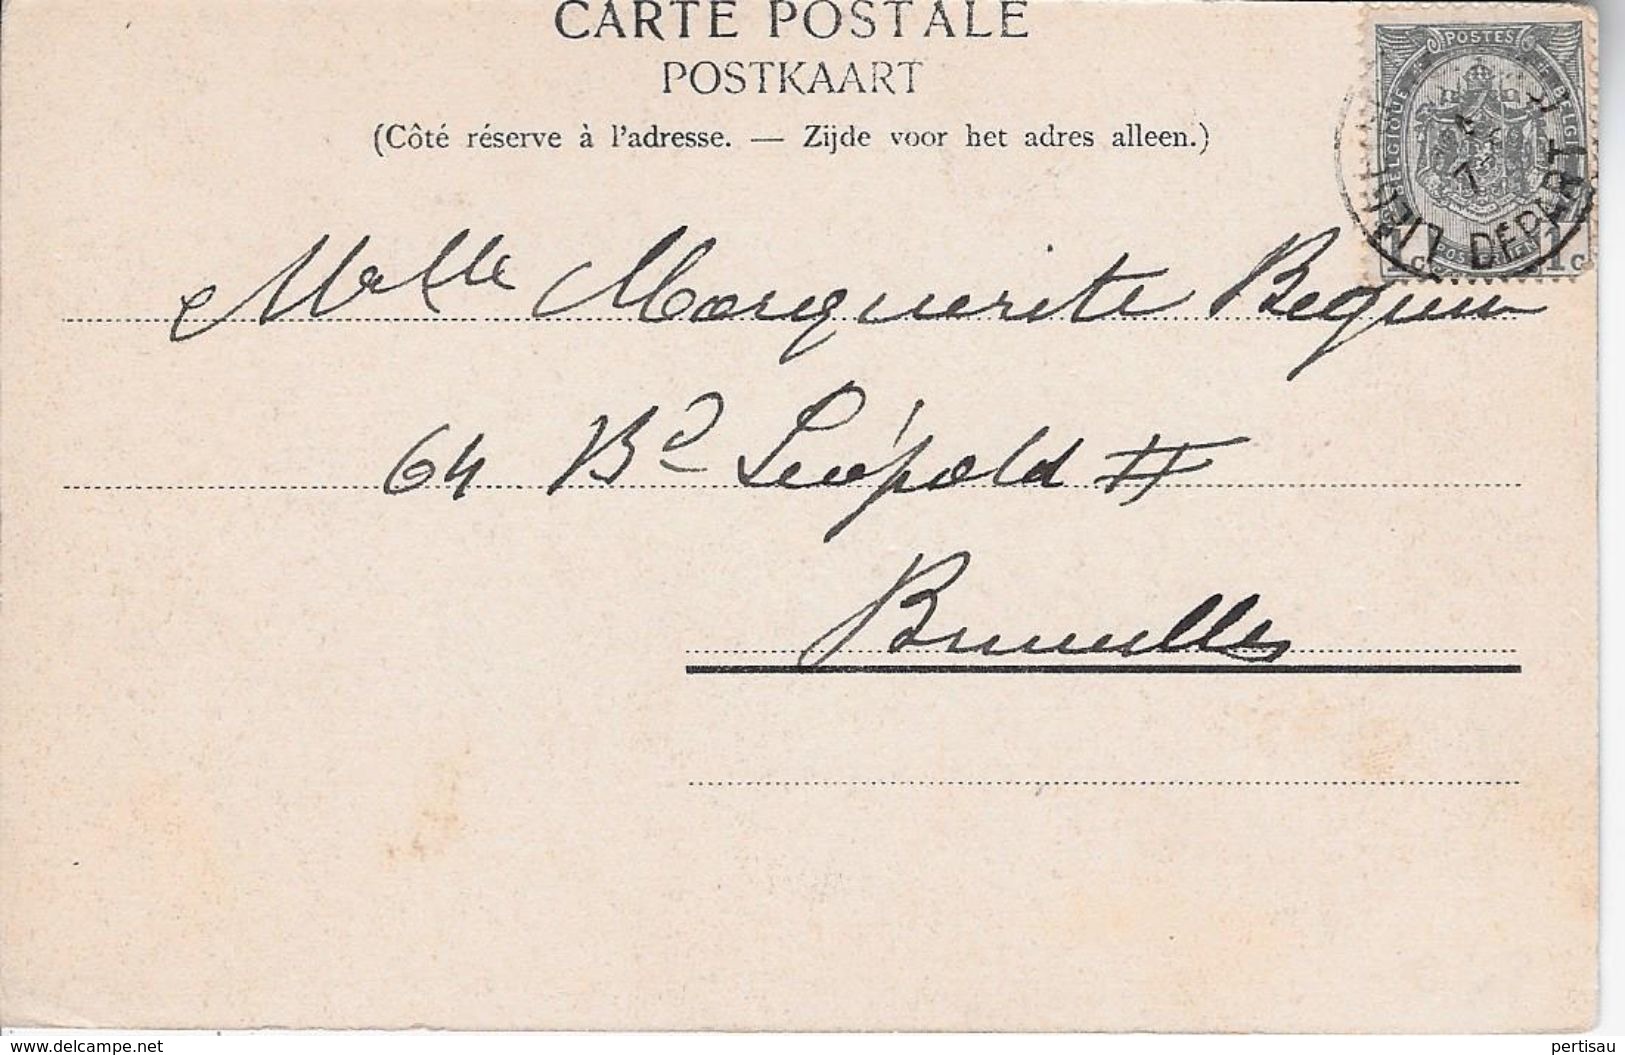 CARTE POSTALE
POSTKAART
(Côté réserve à l'adresse. — Zijde voor het adres alleen.)
POSTES
BELGIQUE
BELGIË
POSTERIJEN
1c 1c
LIEGE DEPART
7
Melle Marguerite Bequin
64 Bd Léopold II
Bruxelles
www.delcampe.net
pertisau